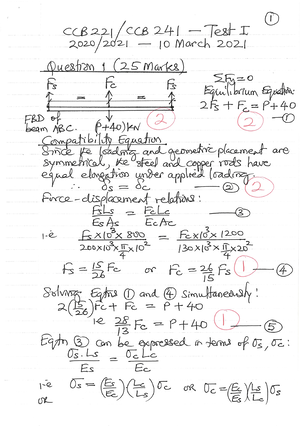 ①
CCB 221/CCB 241 – Test I
2020/2021 – 10 March 2021
Question 1 (25 Marks)
Fs Fc Fs
ΣFy = 0
Equilibrium Equation:
2Fs + Fc = P+40
② — ①
FBD of
beam ABC. (P+40) kN ②
Compatibility Equation
Since the loading and geometric placement are
symmetrical, the steel and copper rods have
equal elongation under applied loading.
∴ δs = δc — ② ②
Force-displacement relations:
FsLs/EsAs = FcLc/EcAc — ③
i.e Fs×10³×800/200×10³×π/4×10² = Fc×10³×1200/130×10³×π/4×20²
Fs = 15/26 Fc or Fc = 26/15 Fs ① — ④
Solving Eqtns ① and ④ Simultaneously:
2(15/26)Fc + Fc = P + 40
i.e 28/13 Fc = P + 40 ① — ⑤
Eqtn ③ can be expressed in terms of σs, σc:
σs.Ls/Es = σcLc/Ec
i.e σs = (Es/Ec)(Lc/Ls)σc or σc = (Ec/Es)(Ls/Lc)σs
or